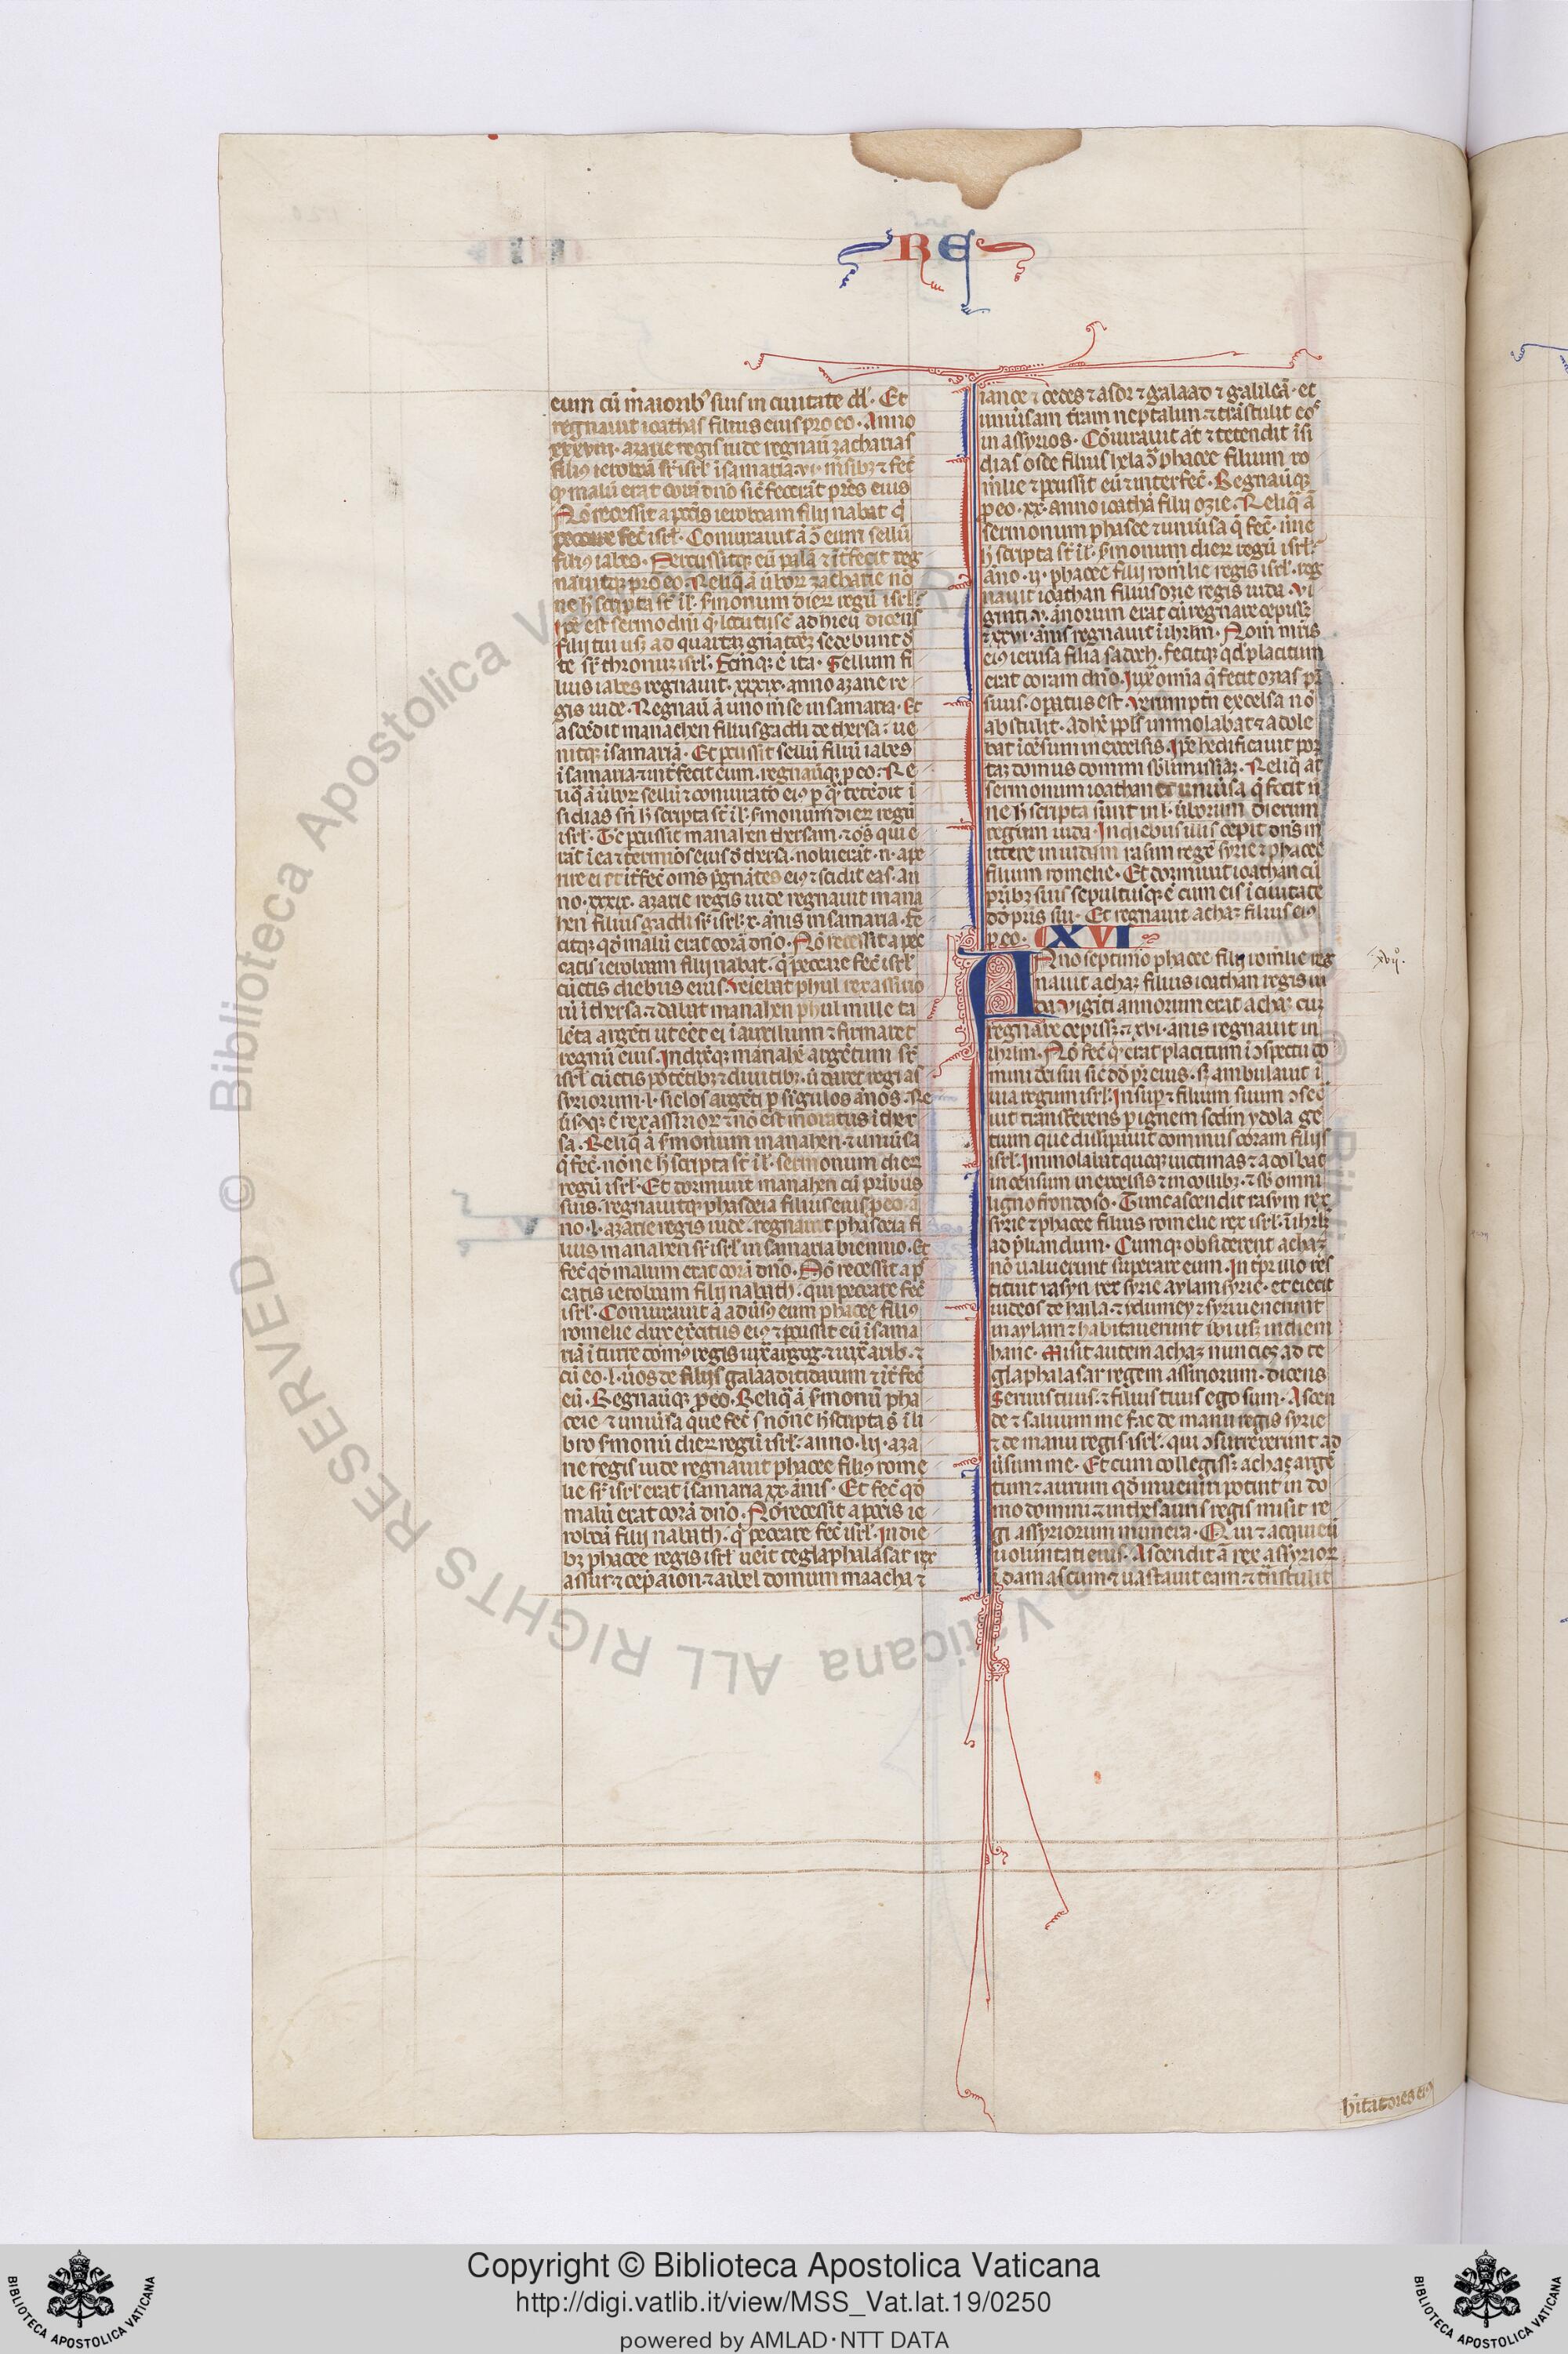 RE
eum cū maioribꝰ suis in ciuitate dd̄. Et
regnauit ioathas filius eius pro eo. Anno
xxxviii. azarie regis iude regnauit zacharias
filiꝰ ieroboā sr̄ isrl̄ ī samaria. vi. m̄sibꝫ ⁊ fec̄
qꝫ malū erat corā dn̄o sic̄ fecerāt pr̄es eius
Nō recessit a pcc̄is ieroboam filij nabat q̄
peccare fec̄ isrl̄. Coniurauit ā ↄ̄ eum sellū
filiꝰ iabes. Percussitqꝫ eū palā ⁊ īt̄fecit reg
nauitqꝫ pro eo. Reliq̄ ā ūborꝝ zacharie nō
ne h̄ scripta sr̄ ī l̄. s̄monum dierꝝ regū isrl̄.
Ip̄e est sermo dn̄i q̄ locutus ē ad hieu dicens
filij tui usqꝫ ad quartaꝫ gn̄atōeꝫ sedebunt d̄
te sr̄ thronuꝫ isrl̄. Fcm̄qꝫ ē ita. Sellum fi
lius iabes regnauit. xxxix. anno azarie re
gis iude. Regnau̅ ā uno m̄se in samaria. Et
ascēdit manahen filius gaddi de thersa. ue
nitqꝫ ī samariā. Et ꝑcussit sellū filiū iabes
ī samaria ⁊ int̄fecit eum. regnauitqꝫ ꝑ eo. Re
liq̄ ā ūborꝝ sellū ⁊ coniuratō eiꝰ ꝑ q̄ tetēdit ī
sidias
isrl̄. Tc̄ ꝑcussit manahen thersam. ⁊ oēs qui e
rāt ī ea ⁊ termīos eius d̄ thersa. noluerāt. n̄. ape
rire ei ⁊ īt̄fec̄ oms p̄gnātes eiꝰ ⁊ scidit eas. an
no. xxxix. azarie regis iude regnauit mana
hen filius gaddi sr̄ isrl̄. x. ānis in samaria. Fe
citqꝫ qd̄ malū erat corā dn̄o. Nō recessit a pec
catis ieroboam filij nabat. q̄ peccare fec̄ isrl̄
cūctis diebus eius. Veiebat phul rex assirio
rū ī thersa. ⁊ dabat manahen phul mille ta
lēta argēti ut eēt ei ī auxilium ⁊ firmaret
regnū eius. Indixitqꝫ manahē argētum sr̄
isrl̄ cūctis potētibꝫ ⁊ diuitibꝫ. ū daret regi as
syriorum. l. siclos argēti ꝑ sīgulos ānos. Re
ūsusqꝫ ē rex assirioꝝ ⁊ nō est moratus ī ther
sa. Reliq̄ ā s̄monum manahen. ⁊ uniūsa
q̄ fec̄. nōne h̄ scripta sr̄ ī l̄. sermonum dierꝝ
regū isrl̄. Et dormiuit manahen cū pr̄ibus
suis. regnauitqꝫ phasceia filius eius ꝑ eo. ā
no. l. azarie regis iude. regnauit phasceia fi
lius manahen sr̄ isrl̄ in samaria biennio. Et
fec̄ qd̄ malum erat corā dn̄o. Nō recessit a pc̄
catis ieroboam filij nabath. qui peccare fec̄
isrl̄. Coniurauit ā adūsꝰ eum phacee filiꝰ
romelie dux exc̄itus eiꝰ ⁊ ꝑcussit eū ī sama
riā ī turre domꝰ regis iuxta argog. ⁊ iuxta arib. ⁊
cū eo. l. uiros de filijs galaaditidarum ⁊ īt̄fec̄
eū. Regnauitqꝫ ꝓ eo. Reliq̄ ā s̄monū pha
ceie ⁊ uniūsa que fec̄ nōne h̄ scripta sr̄ ī li
bro s̄monū dierꝝ regū isrl̄. anno. lij. aza
rie regis iude regnauit phacee filiꝰ rome
lie sr̄ isrl̄ erat ī samaria xx. ānis. Et fec̄ qd̄
malū erat corā dn̄o. Nō recessit a pcc̄is ie
roboā filij nabath. q̄ peccare fec̄ isrl̄. In die
bꝫ phacee regis isrl̄ ueīt teglaphalasar rex
assur. ⁊ cep̄ aion. ⁊ aibel domum maacha ⁊
ianoe ⁊ cedes ⁊ asor ⁊ galaad ⁊ galileā. et
uniūsam t̄ram neptalim. ⁊ trāstulit eos
in assyrios. Cōiurauit āt ⁊ tetendit īsi
dias osee filius hela ↄ̄ phacee filium ro
melie ⁊ ꝑcussit eū ⁊ interfec̄. Regnauitqꝫ
ꝑ eo. xx. anno ioathā filij ozie. Reliq̄ ā
sermonum phacee ⁊ uniūsa q̄ fec̄. nōne
h̄ scripta sr̄ ī l̄. s̄monum dierꝝ regū isrl̄.
āno. ij. phacee filij romelie regis isrl̄. reg
nauit ioathan filius ozie regis iuda. Vi
ginti. v. ānorum erat cū regnare cepissꝫ
⁊ xvi. ānis regnauit ī ihrl̄m. Nom̄ mr̄is
eiꝰ ierusa filia sadoch. fecitqꝫ qd̄ placitum
erat coram dn̄o. Iux̄ omīa q̄ fecit ozias pr̄
suus. opatus est. Verumptn̄ excelsa nō
abstulit. adhc̄ ppl̄s immolabat ⁊ adole
bat īcēsum in excelsis. Ip̄e hedificauit por
taꝫ domus domini sbl̄imissimā. Reliq̄ āt
sermonum ioathan et uniūsa q̄ fecit nō
ne h̄ scripta sunt in l̄. ūborum dierum
regum iuda. In diebus illis cepit dn̄s m
ittere in iudam rasin regē syrie ⁊ phacee
filium romelie. Et dormiuit ioathan cū
pr̄ibꝫ suis sepultusqꝫ ē cum eis ī ciuitate
dd̄ pr̄is sui. Et regnauit achaz filius eiꝰ
ꝑ eo. XVI
Anno septimo phacee filij romelie reg
nauit achaz filius ioathan regis iu
da. Viginti annorum erat achaz cuꝫ
regnare cepissꝫ. ⁊ xvi. ānis regnauit in
ihrl̄m. Nō fec̄ qd̄ erat placitum ī ↄspectu do
mini dei sui sic̄ dd̄ pr̄ eius. sꝫ ambulauit ī
uia regum isrl̄. Insuꝑ ⁊ filium suum ↄsec̄
uit transferens ꝑ ignem scdm̄ ydola ge
tium que dissipauit dominus coram filijs
isrl̄. Immolabat quoqꝫ uictimas ⁊ adolebat
incensum in excelsis ⁊ in collibꝫ. ⁊ sb̄ omni
ligno frondoso. Tunc ascendit rasym rex
syrie ⁊ phacee filius romelie rex isrl̄. ī ihrl̄m
ad p̄liandum. Cumqꝫ obsiderent achaz
nō ualuerunt superare eum. In tꝑe illo res
tituit rasyn rex syrie aylam syrie. et eiecit
iudeos de haila. ⁊ ydumey ⁊ syri uenerunt
in aylam ⁊ habitauerunt ibi usqꝫ in diem
hanc. Misit autem achaz nuncios ad te
glaphalasar regem assiriorum. dicens
Seruus tuus. ⁊ filius tuus ego sum. Ascen
de ⁊ saluum me fac de manu regis syrie
⁊ de manu regis isrl̄. qui ↄsurrexerunt ad
ūsum me. Et cum collegissꝫ achaz argē
tum ⁊ aurum qd̄ inueniri potuit in do
mo domini. ⁊ in thesauris regis misit re
gi assyriorum munera. Qui ⁊ acquieū
uoluntati eius. Ascendit ā rex assyriorꝝ
ī damascum. ⁊ uastauit eam. ⁊ trāstulit
xvij.
bitatores eiꝰ
© Biblioteca Apostolica Vaticana ALL RIGHTS RESERVED
Copyright © Biblioteca Apostolica Vaticana
http://digi.vatlib.it/view/MSS_Vat.lat.19/0250
powered by AMLAD·NTT DATA
BIBLIOTECA APOSTOLICA VATICANA
BIBLIOTECA APOSTOLICA VATICANA